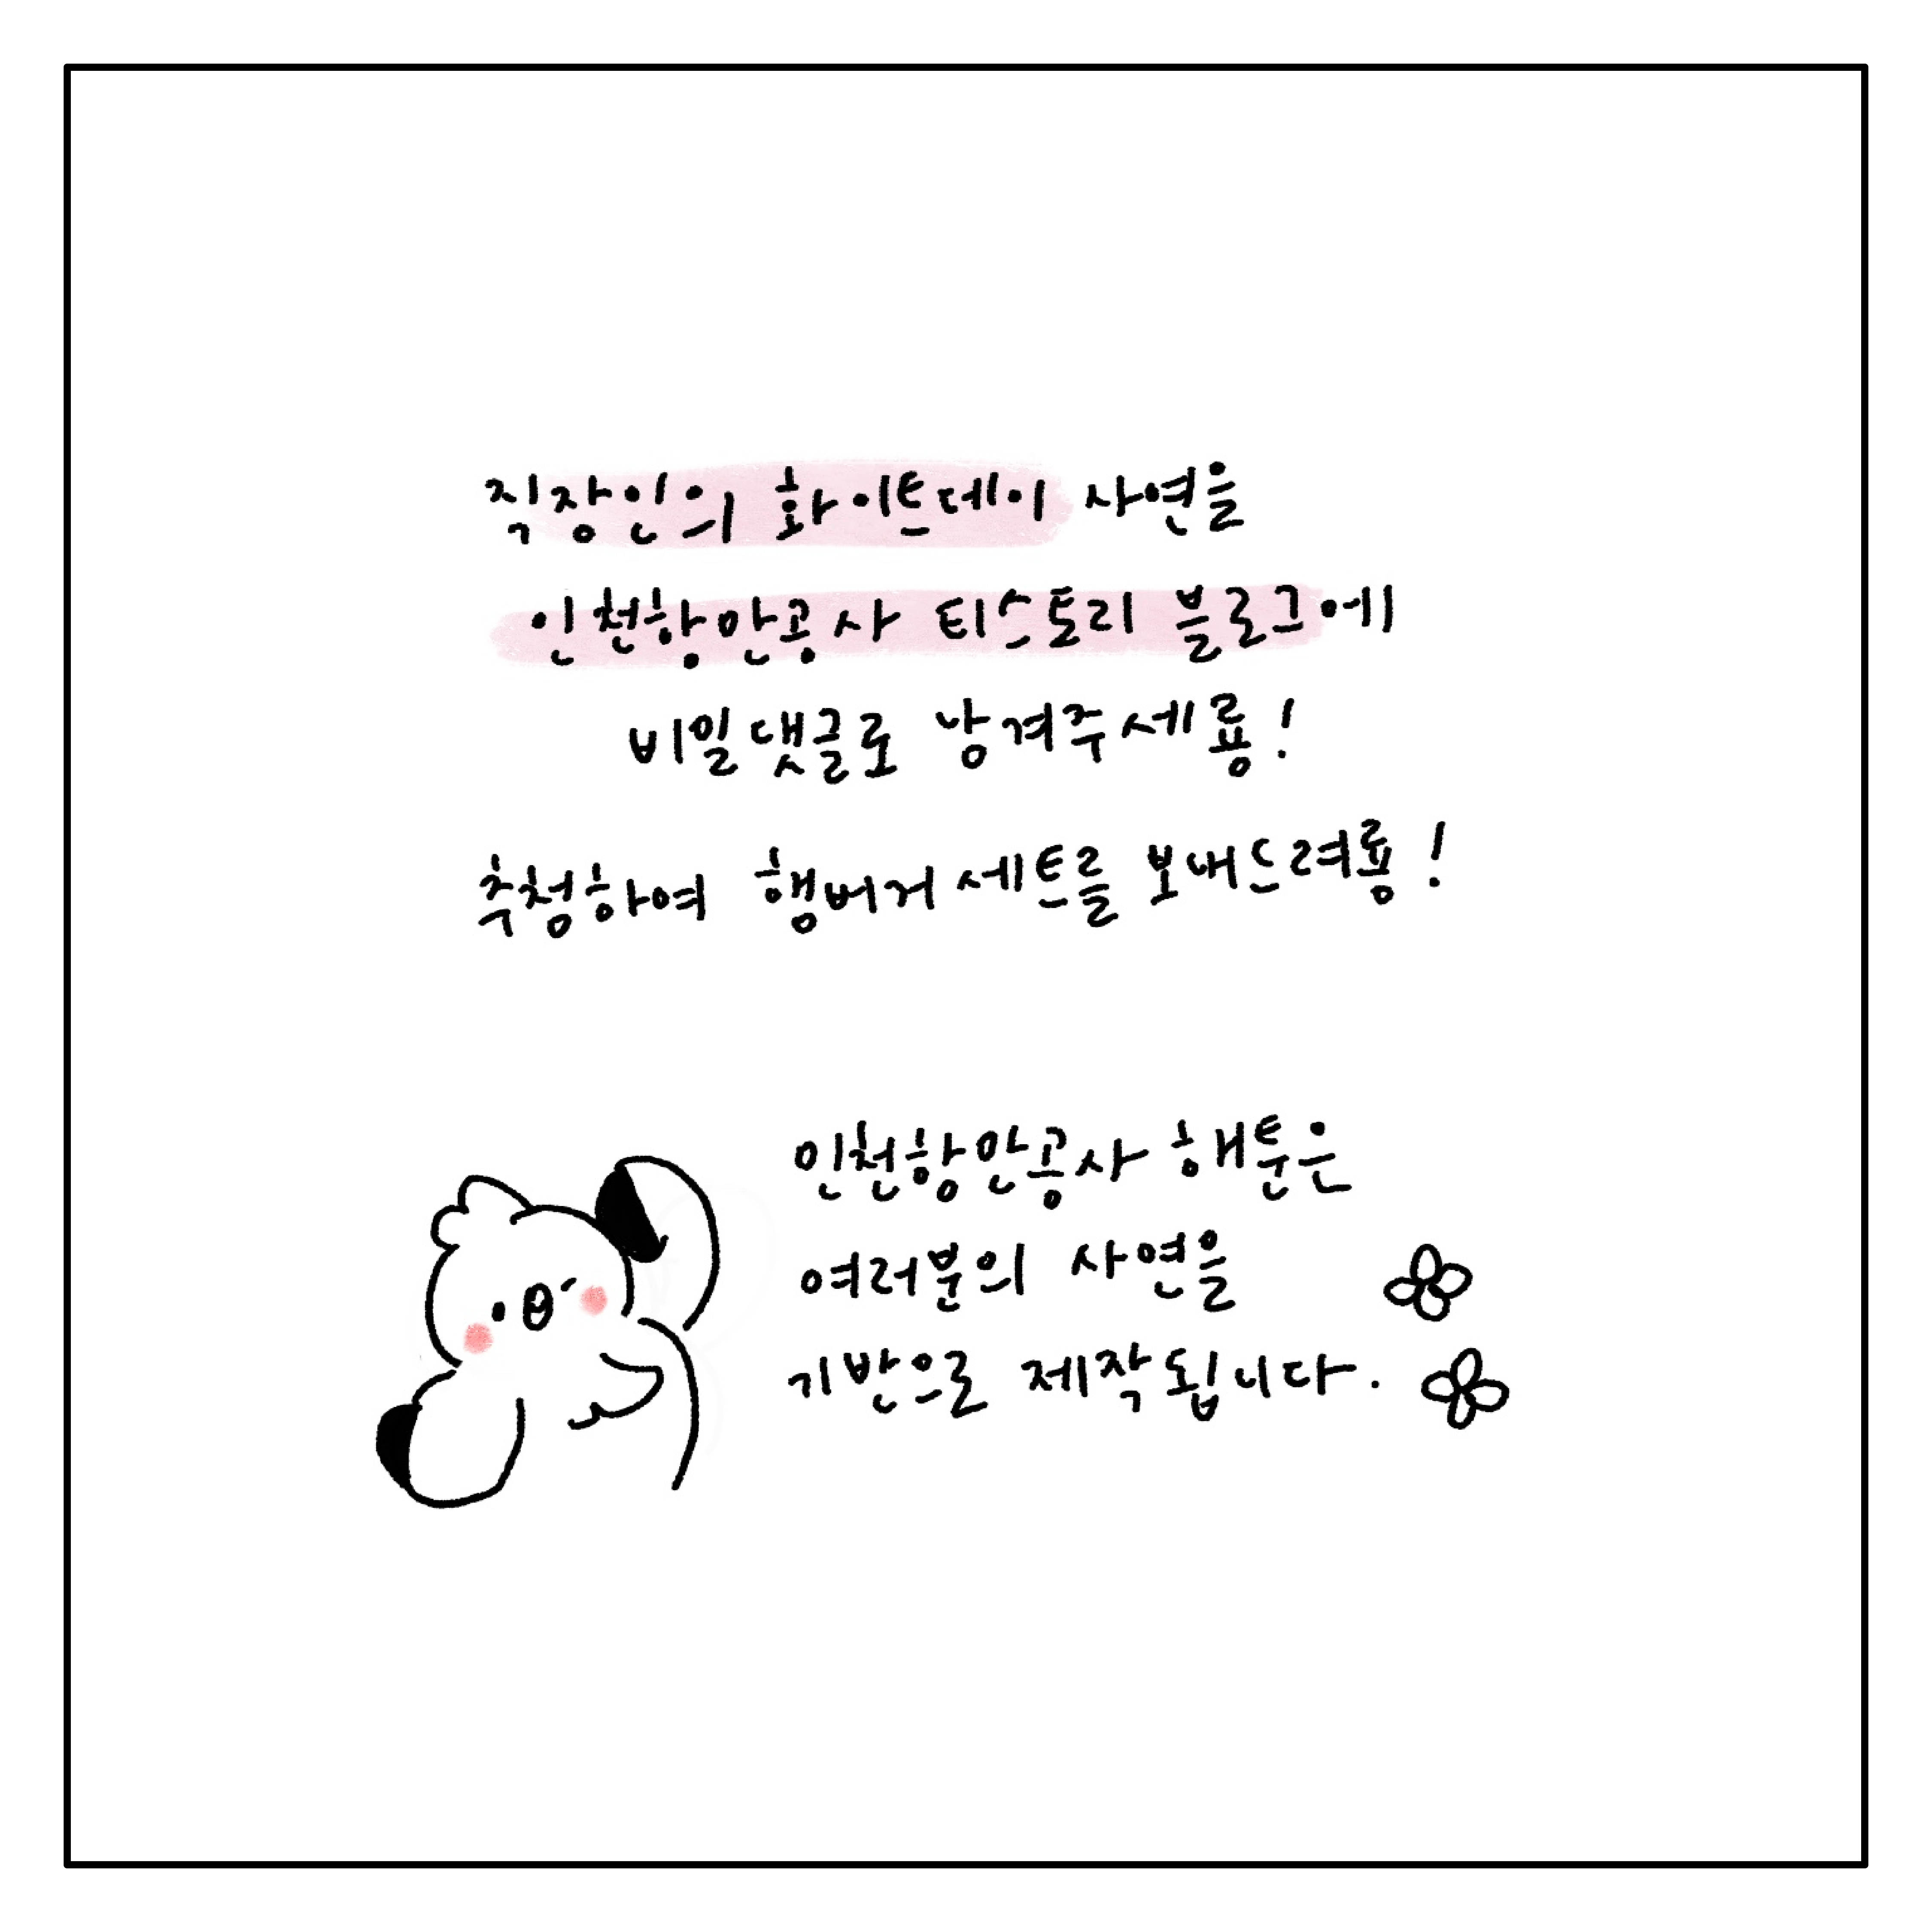 직장인의 화이트데이 사연을
인천항만공사 티스토리 블로그에
비밀댓글로 낭겨주세룡!
추청하여 행버거세트를 보내드려룡!
인천항만공사 해툰은
여러분의 사연을
기반으로 제작됩니다.